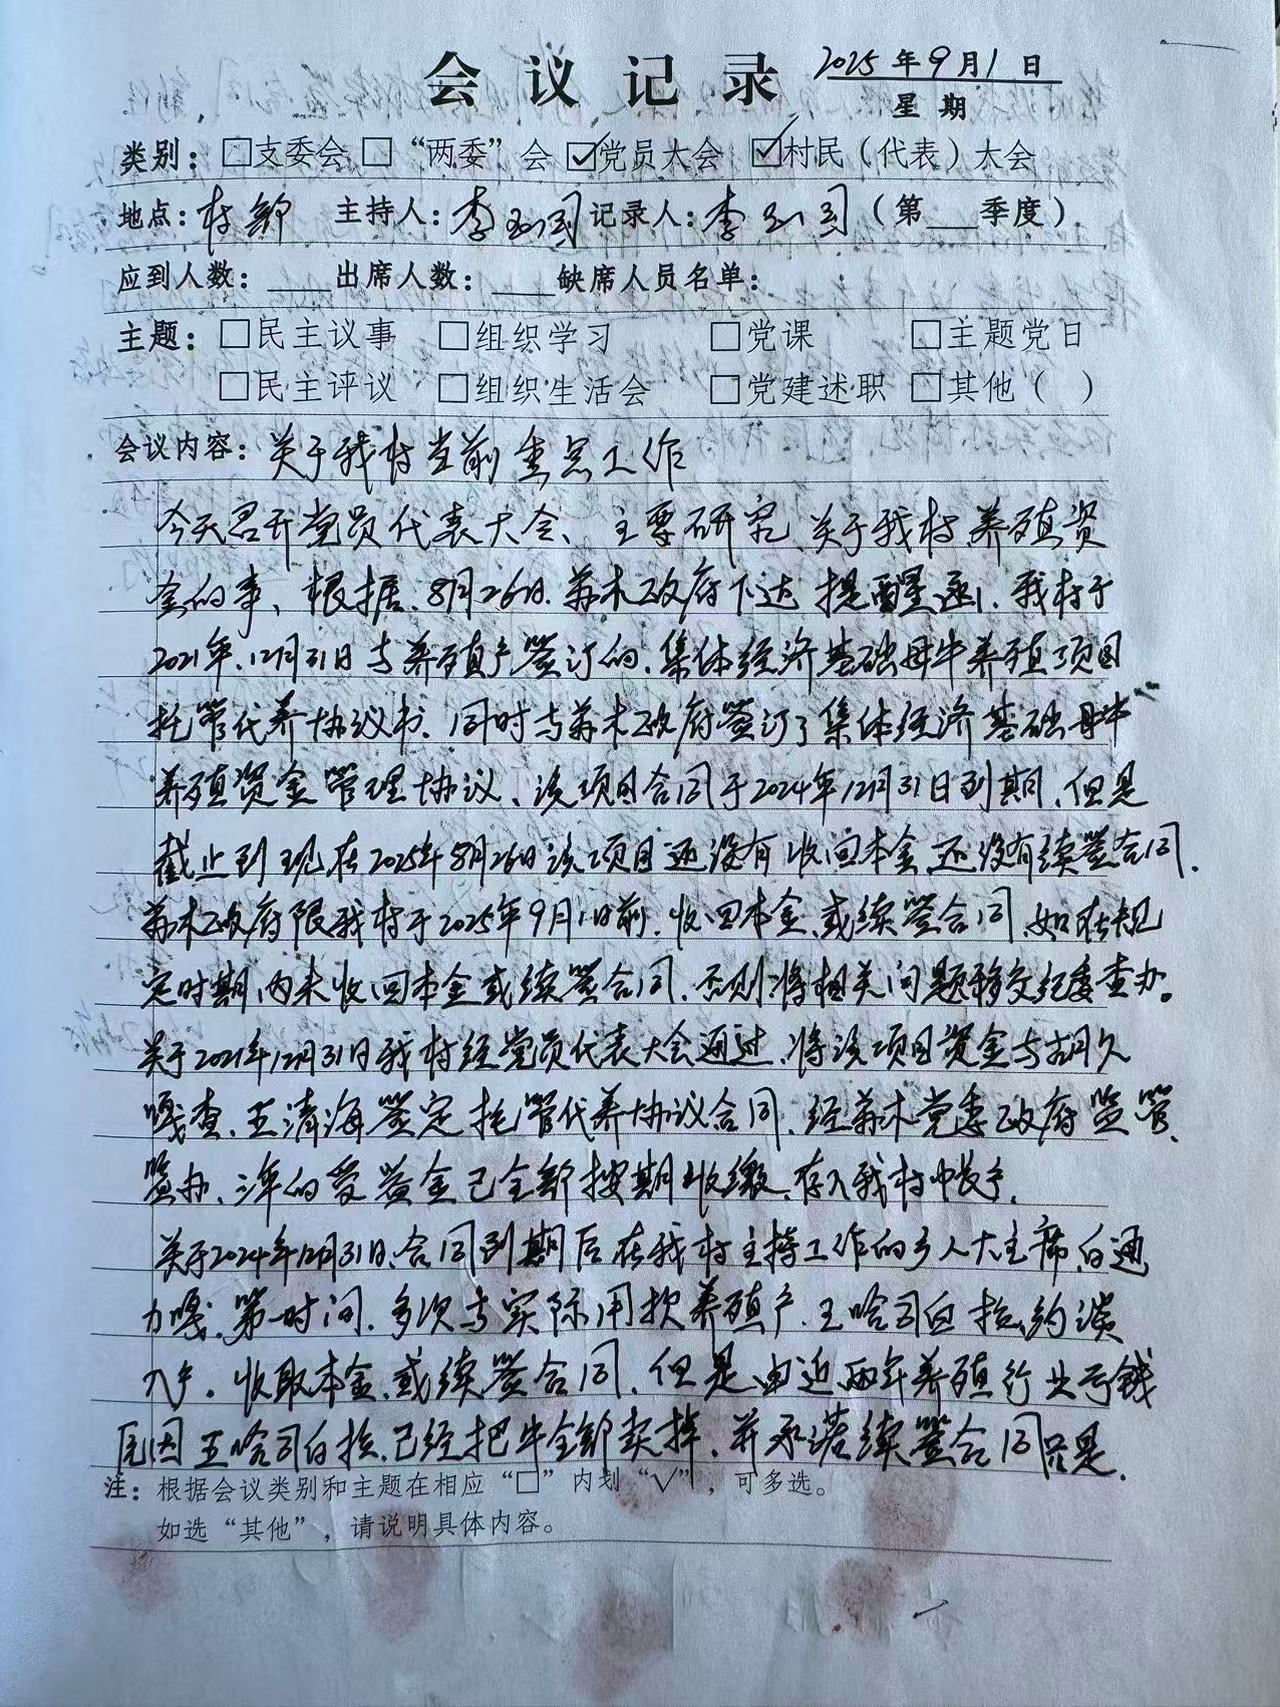 会议记录 2025年9月1日
星期
类别：☐支委会 ☐“两委”会 ☑党员大会 ☑村民（代表）大会
地点：村部 主持人：李 记录人：李 （第___季度）
应到人数：____出席人数：____缺席人员名单：
主题：☐民主议事 ☐组织学习 ☐党课 ☐主题党日
☐民主评议 ☐组织生活会 ☐党建述职 ☐其他（ ）
会议内容：关于我村当前重点工作
今天召开党员代表大会、主要研究、关于我村养殖资
金的事、根据、8月26日、苏木政府下达提醒函、我村于
2021年、12月31日与养殖户签订的、集体经济基础母牛养殖项目
托管代养协议书、同时与苏木政府签订了集体经济基础母牛
养殖资金管理协议、该项目合同于2024年12月31日到期、但是
截止到现在2025年8月26日该项目还没有收回本金还没有续签合同.
苏木政府限我村于2025年9月1日前、收回本金、或续签合同、如在规
定时期内未收回本金或续签合同、否则将相关问题移交纪委查办。
关于2021年12月31日我村经党员代表大会通过、将该项目资金与胡久
嘎查、王清海签定托管代养协议合同、经苏木党委政府监管、
签办、三年的受益金已全部按期收缴、存入我村帐户.
关于2024年12月31日、合同到期后在我村主持工作的乡人大主席、白通
力嘎、第一时间、多次与实际用款养殖户、王哈司白拉、约谈
入户. 收取本金、或续签合同、但是由近两年养殖行业亏钱
原因王哈司白拉、已经把牛全部卖掉、并承诺续签合同只是.
注：根据会议类别和主题在相应“☐”内划“√”，可多选。
如选“其他”，请说明具体内容。